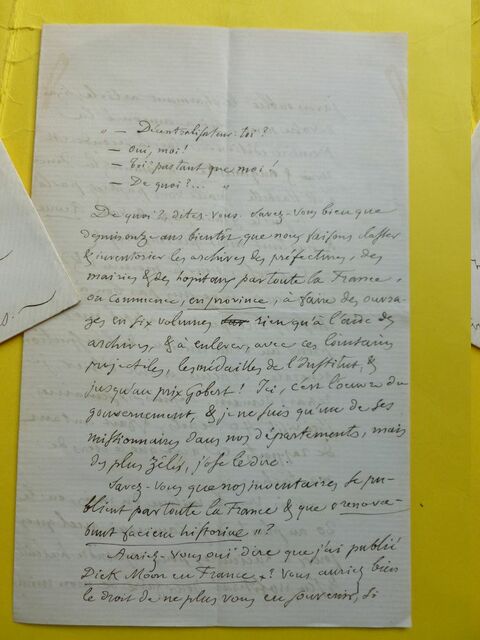 " — Décentralisateur: toi?
— Oui, moi!
— Toi? pas tant que moi!
— De quoi?... "
De quoi?, dites-vous. Savez-vous bien que
depuis onze ans bientôt, que nous faisons classer
& inventorier les archives des préfectures, des
mairies & des hopitaux par toute la France,
on commence, en province, à faire des ouvra-
ges en six volumes rien qu'à l'aide des
archives, & à enlever, avec ces lointains
projectiles, les médailles de l'Institut, &
jusqu'au prix Gobert! Ici, c'est l'œuvre du
gouvernement, & je ne suis qu'un de ses
missionnaires dans nos départements, mais
des plus zélés, j'ose le dire.
Savez-vous que nos inventaires se pu-
blient par toute la France & que "renova-
bunt faciem historiae"?
Auriez-vous ouï dire que j'ai publié
Dick Moon en France? Vous auriez bien
le droit de ne plus vous en souvenir, si